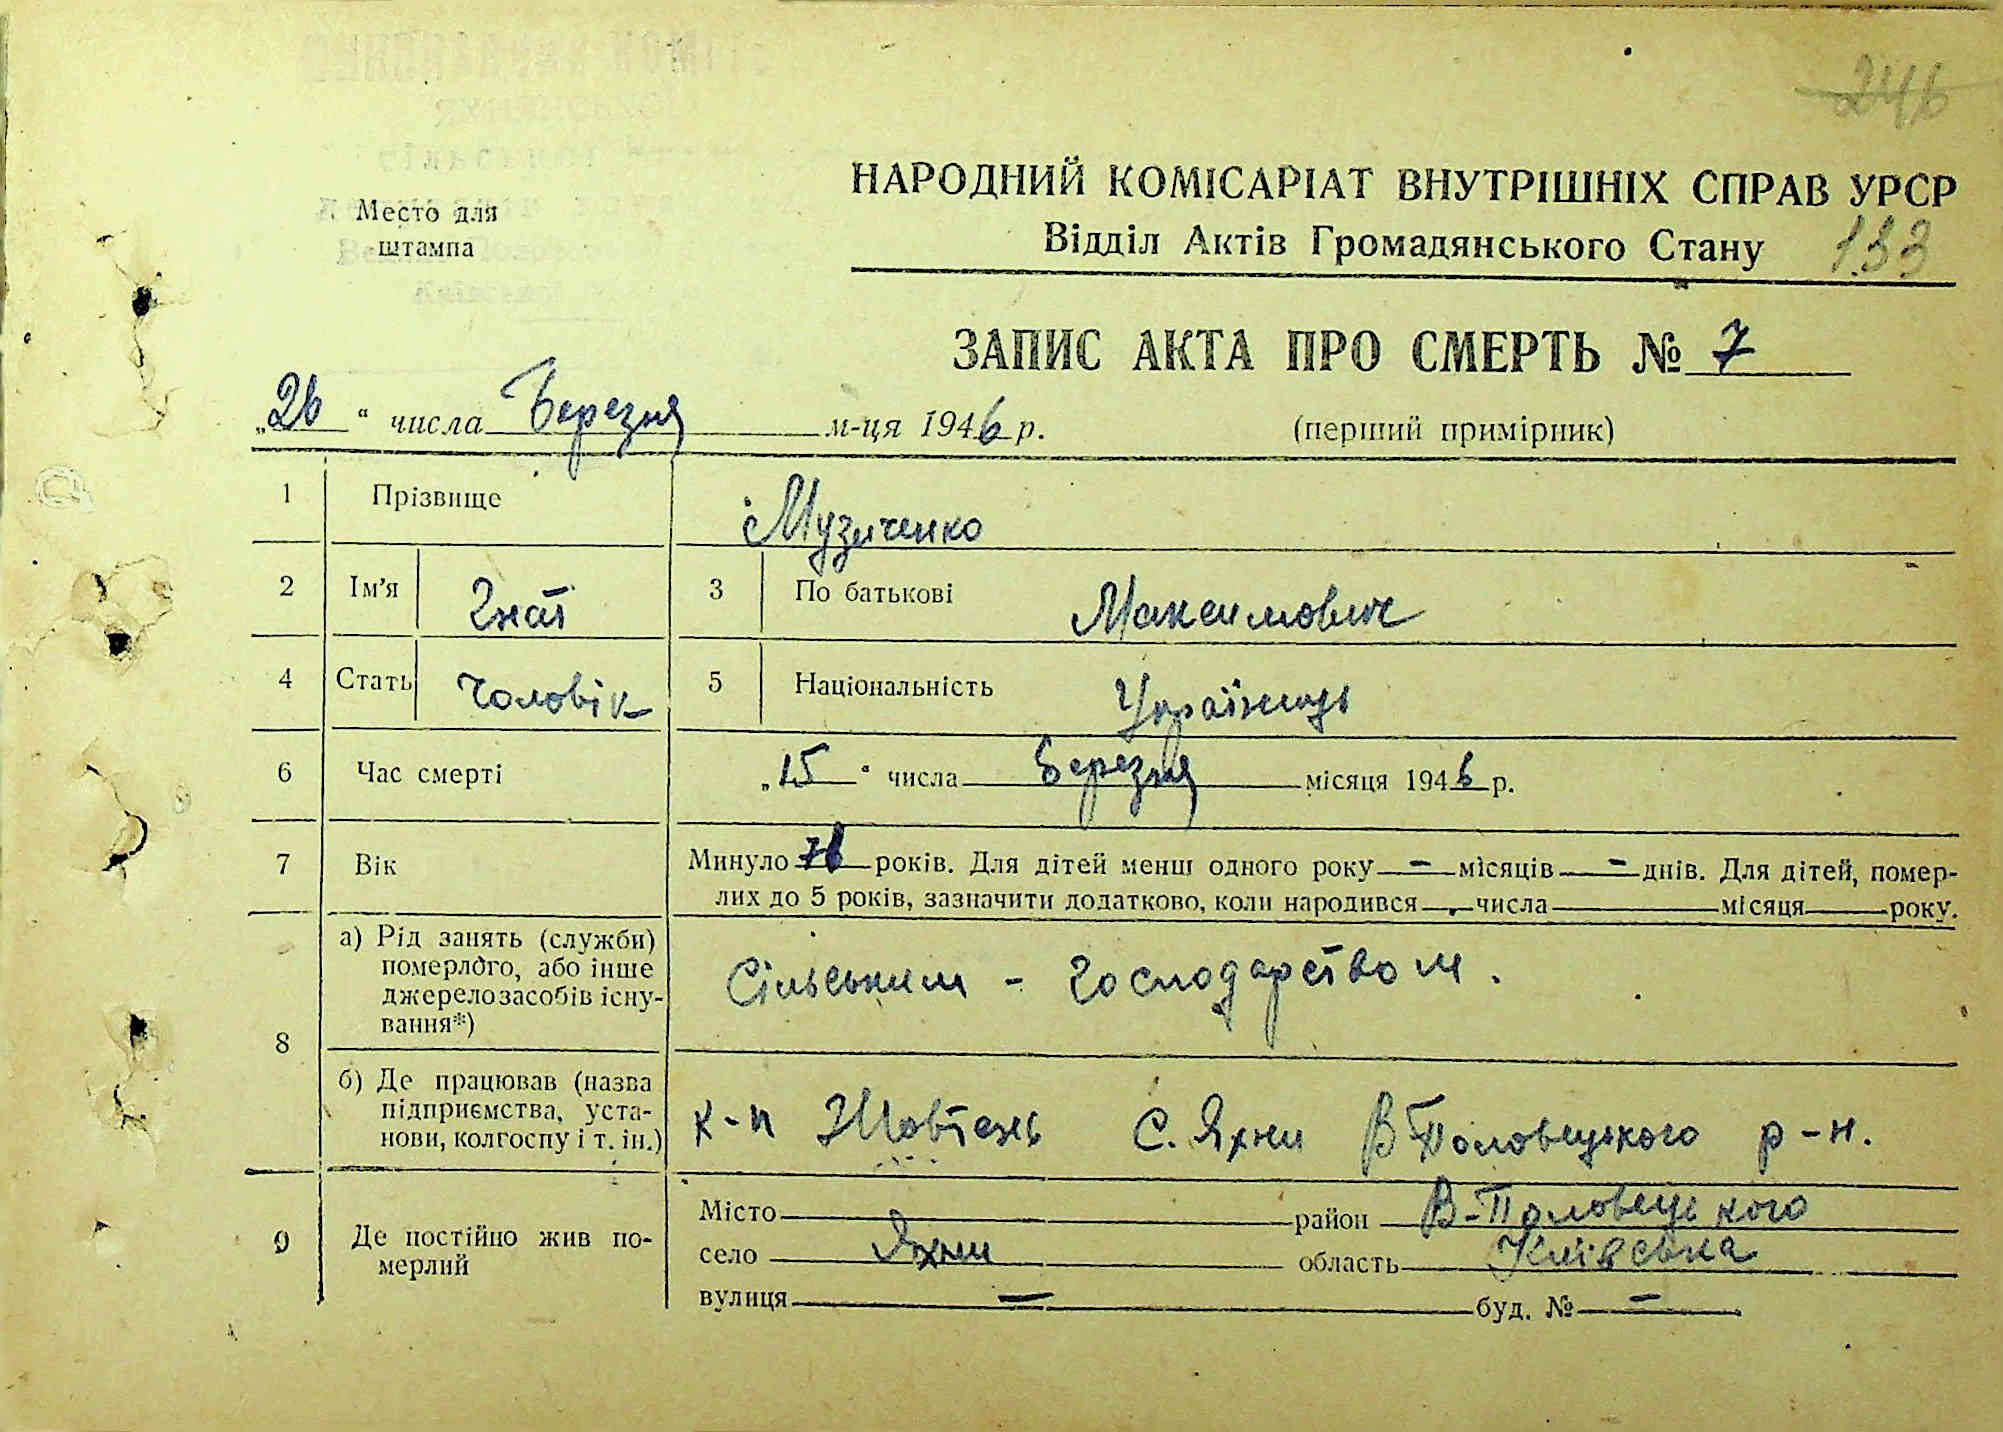 246
НАРОДНИЙ КОМІСАРІАТ ВНУТРІШНІХ СПРАВ УРСР
Место для
штампа
Відділ Актів Громадянського Стану 133
ЗАПИС АКТА ПРО СМЕРТЬ № 7
„26“ числа Березня м-ця 1946 р. (перший примірник)
1 Прізвище Музиченко
2 Ім'я Гнат 3 По батькові Максимович
4 Стать Чоловік 5 Національність Українець
6 Час смерті „15“ числа Березня місяця 1946 р.
7 Вік Минуло 76 років. Для дітей менш одного року — місяців — днів. Для дітей, помер-
лих до 5 років, зазначити додатково, коли народився числа місяця року.
8 а) Рід занять (служби)
померлого, або інше
джерело засобів існу-
вання*)
Сільським - господарством.
б) Де працював (назва
підприємства, уста-
нови, колгоспу і т. ін.)
к-п Жовтень С. Яхни В Половецького р-н.
9 Де постійно жив по-
мерлий
Місто район В-Половецького
село Яхни область Київська
вулиця — буд. № —